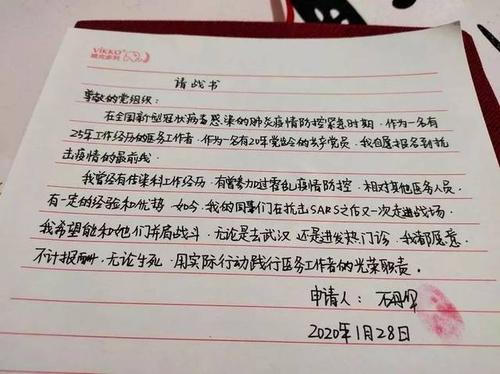 ViKKO
请战书
尊敬的党组织：
在全国新型冠状病毒感染的肺炎疫情防控紧急时期，作为一名有
25年工作经历的医务工作者，作为一名有20年党龄的共产党员，我自愿报名到抗
击疫情的最前线。
我曾经有传染科工作经历，有曾参加过霍乱疫情防控，相对其他医务人员，
有一定的经验和优势。如今，我的同事们在抗击SARS之后又一次走进战场，
我希望能和他们并肩战斗。无论是去武汉还是进发热门诊，我都愿意，
不计报酬，无论生死，用实际行动践行医务工作者的光荣职责。
申请人：
2020年1月28日